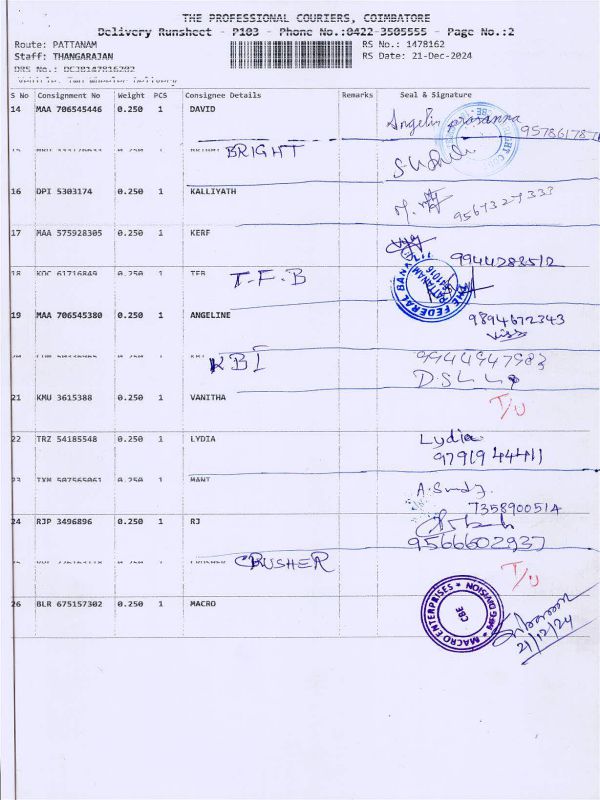 THE PROFESSIONAL COURIERS, COIMBATORE
Delivery Runsheet - P103 - Phone No.:0422-3505555 - Page No.:2
Route: PATTANAM RS No.: 1478162
Staff: THANGARAJAN RS Date: 21-Dec-2024
DRS No.:
S No Consignment No Weight PCS Consignee Details Remarks Seal & Signature
14 MAA 706545446 0.250 1 DAVID
Angelin prasanna
BRIGHT
16 DPI 5303174 0.250 1 KALLIYATH
9567327333
17 MAA 575928305 0.250 1 KERF
9944283512
18 KOC 61716849 0.250 1 TFB
T.F.B
THE FEDERAL BANK
PATTANAM
641016
19 MAA 706545380 0.250 1 ANGELINE
9894672343
KBI
9944947983
21 KMU 3615388 0.250 1 VANITHA
T/U
22 TRZ 54185548 0.250 1 LYDIA
Lydia
9791944411
23 0.250 1 MANI
7358900514
24 RJP 3496896 0.250 1 RJ
9566602937
CRUSHER
T/U
26 BLR 675157302 0.250 1 MACRO
MACRO ENTERPRISES * MFG DIVISION
CBE
21/12/24